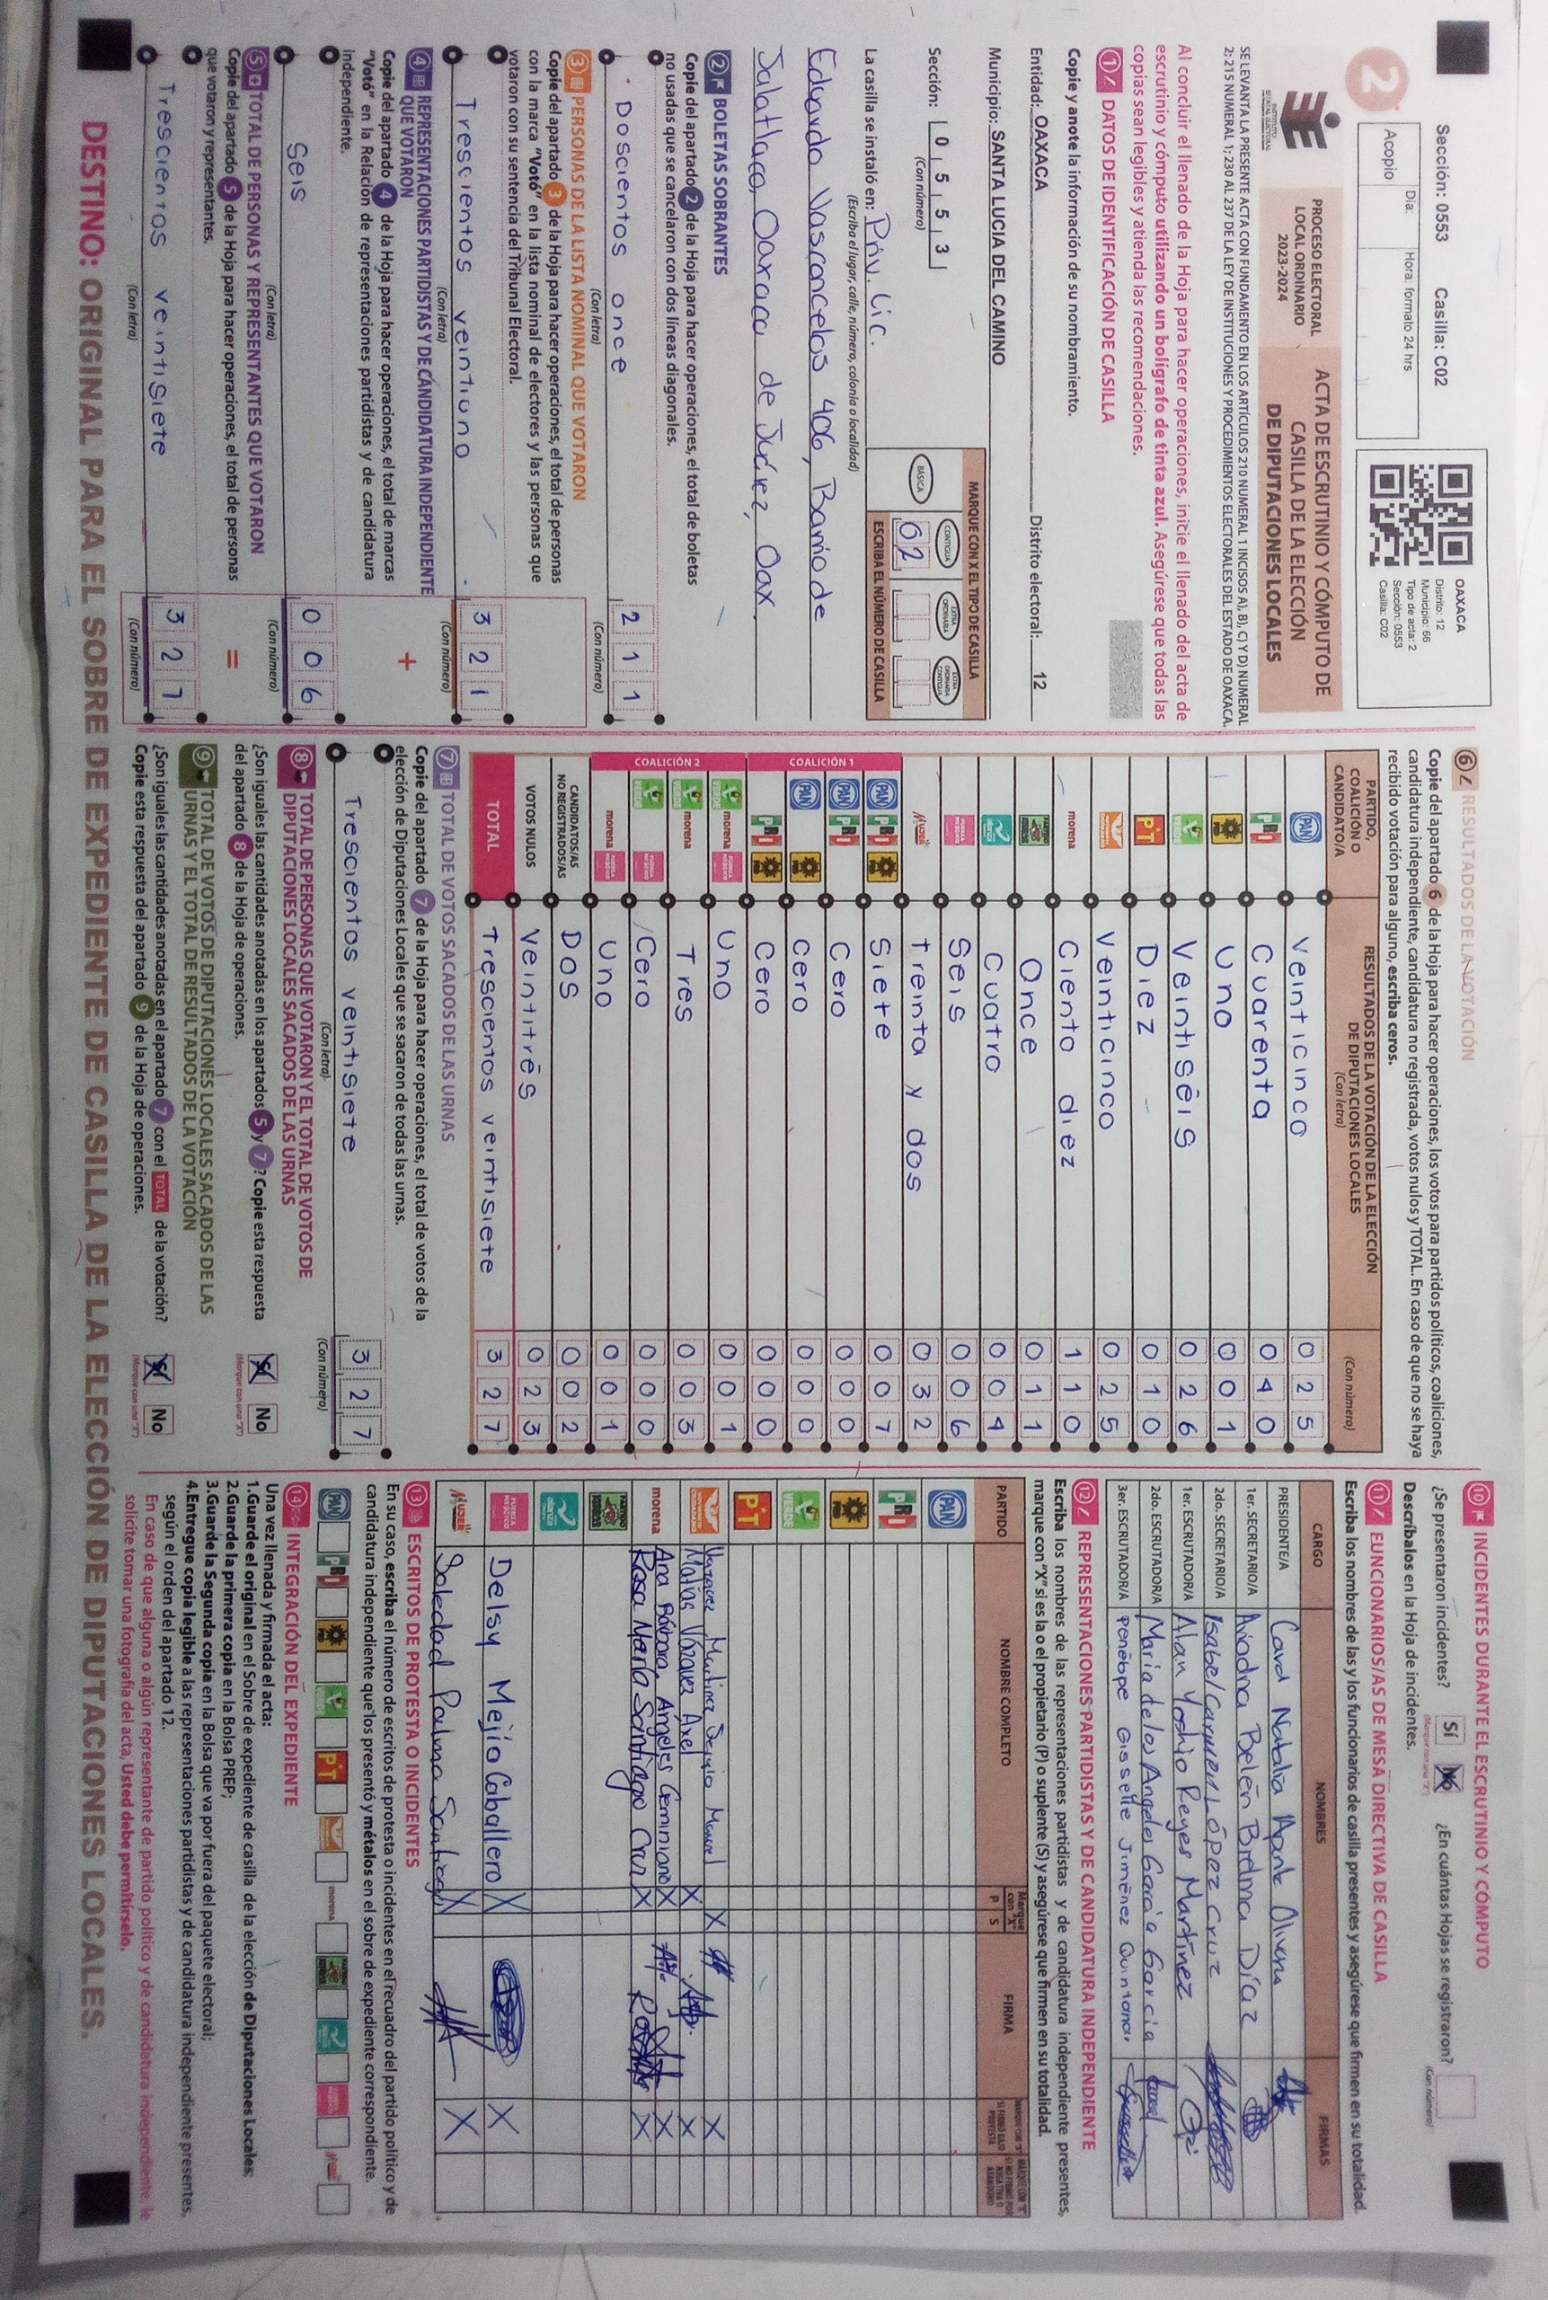 Sección: 0553 Casilla: C02
Día: Hora: formato 24 hrs
Acopio
2
OAXACA
Distrito: 12
Municipio: 66
Tipo de acta: 2
Sección: 0553
Casilla: C02
PROCESO ELECTORAL
LOCAL ORDINARIO
2023-2024
ACTA DE ESCRUTINIO Y CÓMPUTO DE
CASILLA DE LA ELECCIÓN
DE DIPUTACIONES LOCALES
SE LEVANTA LA PRESENTE ACTA CON FUNDAMENTO EN LOS ARTÍCULOS 210 NUMERAL 1 INCISOS A), B), C) Y D) NUMERAL
2; 215 NUMERAL 1; 230 AL 237 DE LA LEY DE INSTITUCIONES Y PROCEDIMIENTOS ELECTORALES DEL ESTADO DE OAXACA.
Al concluir el llenado de la Hoja para hacer operaciones, inicie el llenado del acta de
escrutinio y cómputo utilizando un bolígrafo de tinta azul. Asegúrese que todas las
copias sean legibles y atienda las recomendaciones.
1 DATOS DE IDENTIFICACIÓN DE CASILLA
Copie y anote la información de su nombramiento.
Entidad: OAXACA Distrito electoral: 12
Municipio: SANTA LUCIA DEL CAMINO
Sección: 0 5 5 3
(Con número)
MARQUE CON X EL TIPO DE CASILLA
BÁSICA CONTIGUA EXTRA ORDINARIA EXTRA ORDINARIA CONTIGUA
02
ESCRIBA EL NÚMERO DE CASILLA
La casilla se instaló en: Priv. Lic.
(Escriba el lugar, calle, número, colonia o localidad)
Eduardo Vasconcelos 406, Barrio de
Jalatlaco, Oaxaca de Juárez, Oax.
2 BOLETAS SOBRANTES
Copie del apartado 2 de la Hoja para hacer operaciones, el total de boletas
no usadas que se cancelaron con dos líneas diagonales.
Doscientos once 2 1 1
(Con letra) (Con número)
3 PERSONAS DE LA LISTA NOMINAL QUE VOTARON
Copie del apartado 3 de la Hoja para hacer operaciones, el total de personas
con la marca "Votó" en la lista nominal de electores y las personas que
votaron con su sentencia del Tribunal Electoral.
Trescientos veintiuno 3 2 1
(Con letra) (Con número)
4 REPRESENTACIONES PARTIDISTAS Y DE CANDIDATURA INDEPENDIENTE
QUE VOTARON
Copie del apartado 4 de la Hoja para hacer operaciones, el total de marcas
"Votó" en la Relación de representaciones partidistas y de candidatura
independiente.
+
Seis 0 0 6
(Con letra) (Con número)
5 TOTAL DE PERSONAS Y REPRESENTANTES QUE VOTARON
Copie del apartado 5 de la Hoja para hacer operaciones, el total de personas
que votaron y representantes.
=
Trescientos veintisiete 3 2 7
(Con letra) (Con número)
6 RESULTADOS DE LA VOTACIÓN
Copie del apartado 6 de la Hoja para hacer operaciones, los votos para partidos políticos, coaliciones,
candidatura independiente, candidatura no registrada, votos nulos y TOTAL. En caso de que no se haya
recibido votación para alguno, escriba ceros.
PARTIDO,
COALICIÓN O
CANDIDATO/A
RESULTADOS DE LA VOTACIÓN DE LA ELECCIÓN
DE DIPUTACIONES LOCALES
(Con letra) (Con número)
PAN Veinticinco 0 2 5
PRI Cuarenta 0 4 0
PRD Uno 0 0 1
VERDE Veintiséis 0 2 6
PT Diez 0 1 0
Veinticinco 0 2 5
morena Ciento diez 1 1 0
Once 0 1 1
alianza Cuatro 0 0 4
FUERZA MÉXICO Seis 0 0 6
MUJER Treinta y dos 0 3 2
COALICIÓN 1
PAN PRI PRD Siete 0 0 7
PAN PRI Cero 0 0 0
PAN PRD Cero 0 0 0
PRI PRD Cero 0 0 0
COALICIÓN 2
VERDE morena FUERZA MÉXICO Uno 0 0 1
VERDE morena Tres 0 0 3
VERDE FUERZA MÉXICO Cero 0 0 0
morena FUERZA MÉXICO Uno 0 0 1
CANDIDATOS/AS
NO REGISTRADOS/AS Dos 0 0 2
VOTOS NULOS Veintitrés 0 2 3
TOTAL Trescientos veintisiete 3 2 7
7 TOTAL DE VOTOS SACADOS DE LAS URNAS
Copie del apartado 7 de la Hoja para hacer operaciones, el total de votos de la
elección de Diputaciones Locales que se sacaron de todas las urnas.
Trescientos veintisiete 3 2 7
(Con letra) (Con número)
8 TOTAL DE PERSONAS QUE VOTARON Y EL TOTAL DE VOTOS DE
DIPUTACIONES LOCALES SACADOS DE LAS URNAS
¿Son iguales las cantidades anotadas en los apartados 5 y 7? Copie esta respuesta
del apartado 8 de la Hoja de operaciones.
Sí No
(Marque con una "X")
9 TOTAL DE VOTOS DE DIPUTACIONES LOCALES SACADOS DE LAS
URNAS Y EL TOTAL DE RESULTADOS DE LA VOTACIÓN
¿Son iguales las cantidades anotadas en el apartado 7 con el TOTAL de la votación?
Copie esta respuesta del apartado 9 de la Hoja de operaciones.
Sí No
(Marque con una "X")
10 INCIDENTES DURANTE EL ESCRUTINIO Y CÓMPUTO
¿Se presentaron incidentes? Sí No ¿En cuántas Hojas se registraron?
(Marque con una "X") (Con número)
Descríbalos en la Hoja de incidentes.
11 FUNCIONARIOS/AS DE MESA DIRECTIVA DE CASILLA
Escriba los nombres de las y los funcionarios de casilla presentes y asegúrese que firmen en su totalidad.
CARGO NOMBRES FIRMAS
PRESIDENTE/A Carol Natalia Aponte Olivera
1er. SECRETARIO/A Ariadna Belén Bielma Díaz
2do. SECRETARIO/A Isabel Carmen López Cruz
1er. ESCRUTADOR/A Alan Yoshio Reyes Martínez
2do. ESCRUTADOR/A María de los Angeles García García
3er. ESCRUTADOR/A Penélope Gisselle Jiménez Quintanar
12 REPRESENTACIONES PARTIDISTAS Y DE CANDIDATURA INDEPENDIENTE
Escriba los nombres de las representaciones partidistas y de candidatura independiente presentes,
marque con "X" si es la o el propietario (P) o suplente (S) y asegúrese que firmen en su totalidad.
PARTIDO NOMBRE COMPLETO Marque con "X" P S FIRMA
PAN
PRI
PRD
VERDE
PT
Vazquez Martinez Sergio Manuel X X
Matias Vázquez Axel X X
morena Ana Bárbara Angeles Geminiano X X
Rosa María Santiago Cruz X X
alianza
FUERZA MÉXICO Delsy Mejía Caballero X X
MUJER Soledad Palma Santiago X X
13 ESCRITOS DE PROTESTA O INCIDENTES
En su caso, escriba el número de escritos de protesta o incidentes en el recuadro del partido político y de
candidatura independiente que los presentó y métalos en el sobre de expediente correspondiente.
PAN PRI PRD VERDE PT morena
14 INTEGRACIÓN DEL EXPEDIENTE
Una vez llenada y firmada el acta:
1.Guarde el original en el Sobre de expediente de casilla de la elección de Diputaciones Locales;
2.Guarde la primera copia en la Bolsa PREP;
3.Guarde la Segunda copia en la Bolsa que va por fuera del paquete electoral;
4.Entregue copia legible a las representaciones partidistas y de candidatura independiente presentes,
según el orden del apartado 12.
En caso de que alguna o algún representante de partido político y de candidatura independiente, le
solicite tomar una fotografía del acta, Usted debe permitírselo.
DESTINO: ORIGINAL PARA EL SOBRE DE EXPEDIENTE DE CASILLA DE LA ELECCIÓN DE DIPUTACIONES LOCALES.